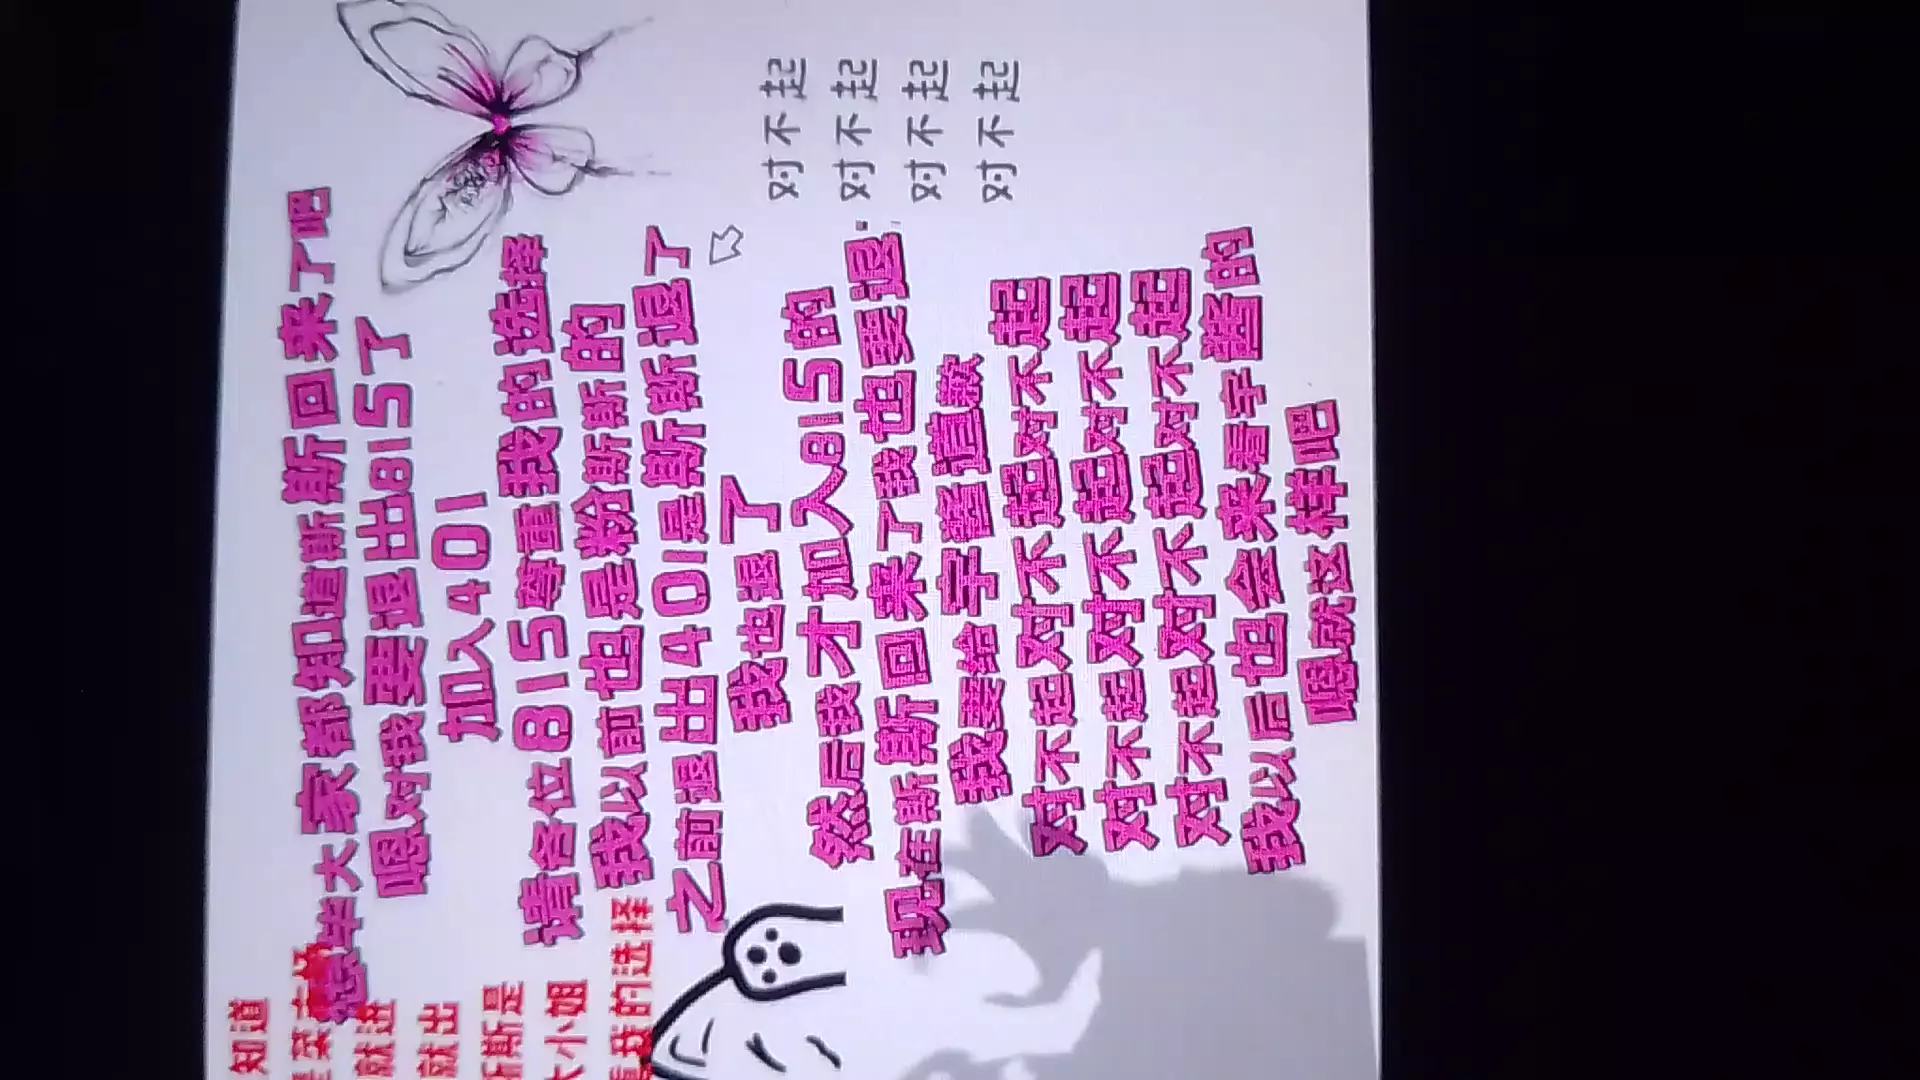 毕大家都知道斯斯回来了吧
嗯对我要退出815了
加入401
请各位815尊重我的选择
我以前也是粉斯斯的
之前退出401是斯斯退了
我也退了
然后我才加入815的
现在斯斯回来了我也要退
我要给宇酱道歉
对不起对不起对不起
对不起对不起对不起
对不起对不起对不起
我以后也会来看宇酱的
嗯就这样吧
对不起
对不起
对不起
对不起
知道
就进
就出
斯是
小姐
我的选择